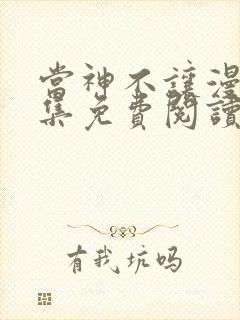 當神不讓漫
集免費閱讀
有我坑吗